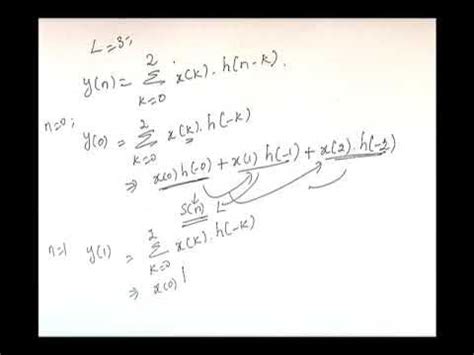 L=3;
y(n) = 2 Σ k=0 x(k). h(n-k).
n=0; y(0) = 2 Σ k=0 x(k). h(-k)
⇒ x(0) h(-0) + x(1) h(-1) + x(2). h(-2)
S(n) L
n=1 y(1) = 2 Σ k=0 x(k). h(-k)
⇒ x(0) |